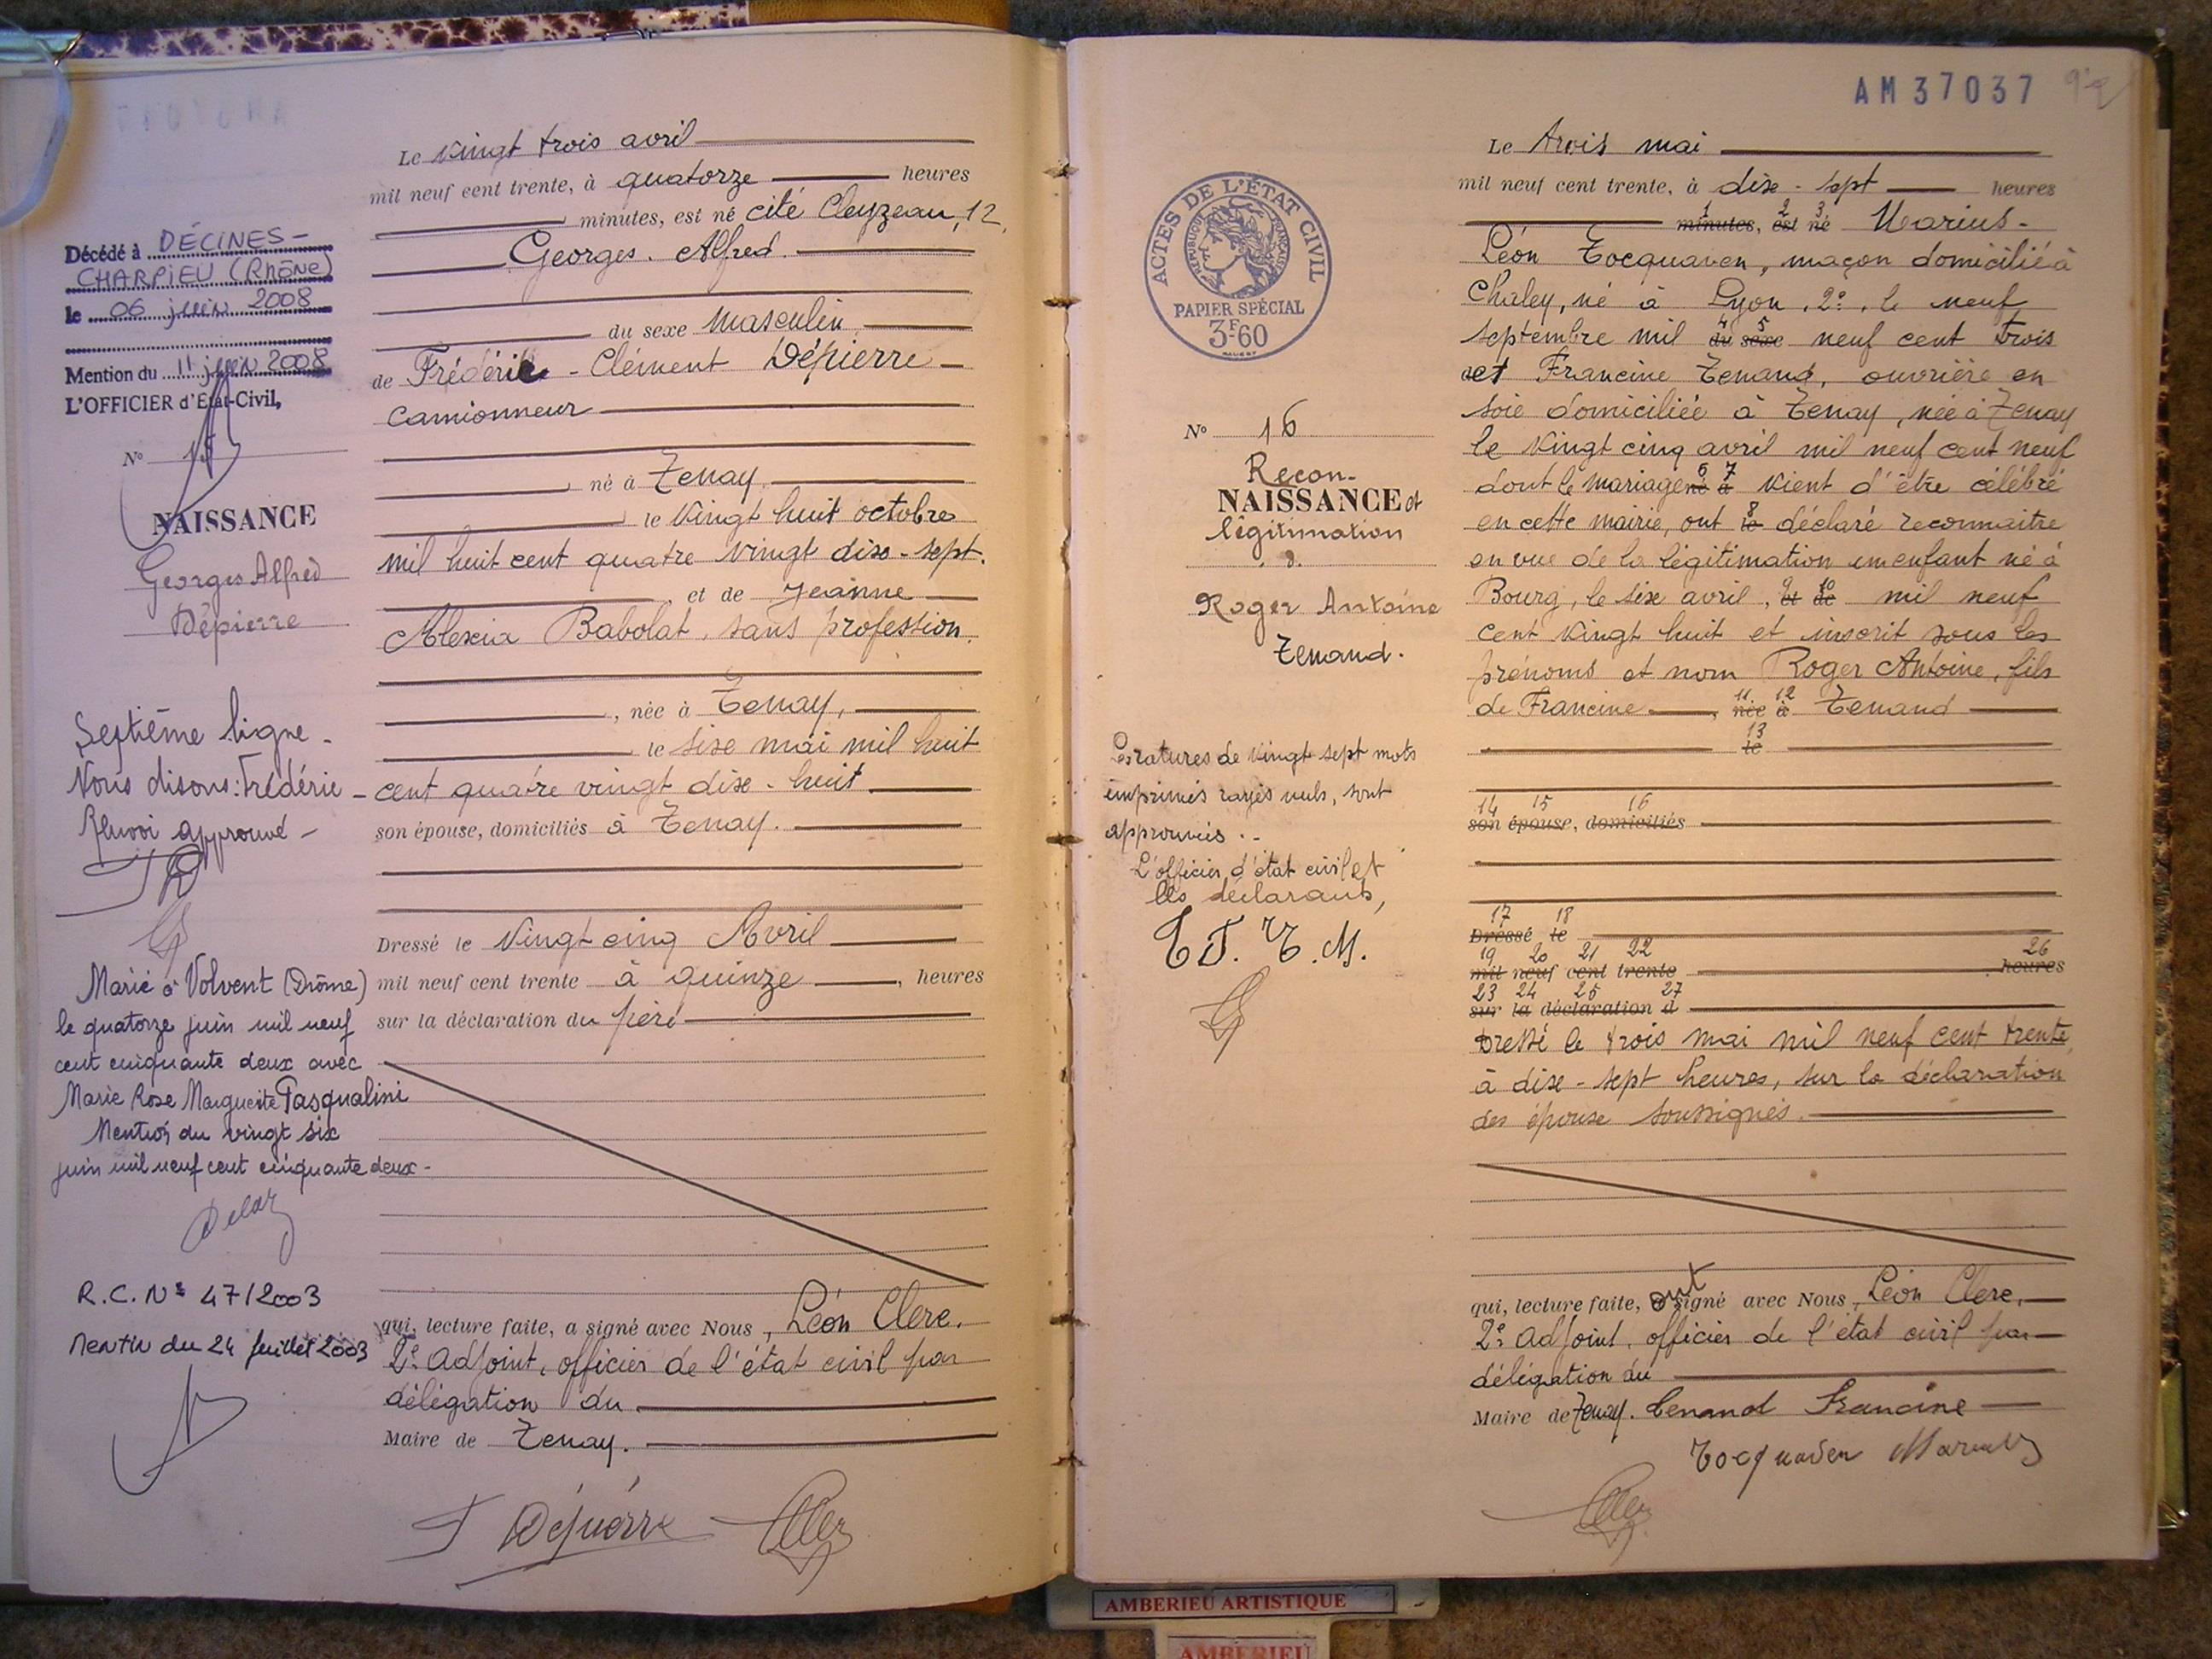 Le vingt trois avril
mil neuf cent trente, à quatorze heures
minutes, est né cité Cleyzeau, 12,
Georges. Alfred.
du sexe masculin.
de Frédéric - Clément Dépierre
camionneur
né à Tenay
le vingt huit octobre
mil huit cent quatre vingt dix-sept.
, et de Jeanne
Alexia Babolat, sans profession.
, née à Tenay,
le six mai mil huit
cent quatre vingt dix-huit.
son épouse, domiciliés à Tenay.
Dressé le vingt cinq Avril
mil neuf cent trente à quinze, heures
sur la déclaration du père
qui, lecture faite, a signé avec Nous, Léon Clerc.
2e Adjoint, officier de l'état civil par
délégation du
Maire de Tenay.
Décédé à DÉCINES-
CHARPIEU (Rhône)
le 06 juin 2008
Mention du 11 juin 2008
L'OFFICIER d'Etat-Civil,
No 15
NAISSANCE
Georges Alfred
Dépierre
Septième ligne -
Nous disons: Frédéric -
Renvoi approuvé -
Marié à Volvent (Drôme)
le quatorze juin mil neuf
cent cinquante deux avec
Marie Rose Marguerite Pasqualini
Mention du vingt six
juin mil neuf cent cinquante deux -
R.C. No 47/2003
Mention du 24 juillet 2003
AM37037
Le trois mai
mil neuf cent trente, à dix-sept heures
1 2 3
minutes, est né Marius-
Léon Tocquaven, maçon domicilié à
Chaley, né à Lyon, 2e, le neuf
4 5
septembre mil du sexe neuf cent trois
et Francine Tenand, ouvrière en
soie domiciliée à Tenay, née à Tenay
le vingt cinq avril mil neuf cent neuf
6 7
dont le mariage né à vient d'être célébré
8
en cette mairie, ont le déclaré reconnaitre
en vue de la légitimation un enfant né à
9 10
Bourg, le six avril, et de mil neuf
cent vingt huit et inscrit sous les
prénoms et nom Roger Antoine, fils
11 12
de Francine, née à Tenand
13
le
14 15 16
son épouse, domiciliés
17 18
Dressé le
19 20 21 22 26
mil neuf cent trente heures
23 24 25 27
sur la déclaration d
Dressé le trois mai mil neuf cent trente
à dix-sept heures, sur la déclaration
des époux soussignés.
qui, lecture faite, ont signé avec Nous, Léon Clerc,
2e Adjoint, officier de l'état civil par
délégation du
Maire de Tenay. Tenand Francine
Tocquaven Marius
ACTES DE L'ÉTAT CIVIL
RÉPUBLIQUE FRANÇAISE
PAPIER SPÉCIAL
3F60
No 16
Recon-
NAISSANCE et
légitimation
Roger Antoine
Tenand.
Les ratures de vingt sept mots
imprimés rayés nuls, sont
approuvées.
L'officier d'état civil et
les déclarants,
T F. T. M.
AMBERIEU ARTISTIQUE
AMBERIEU